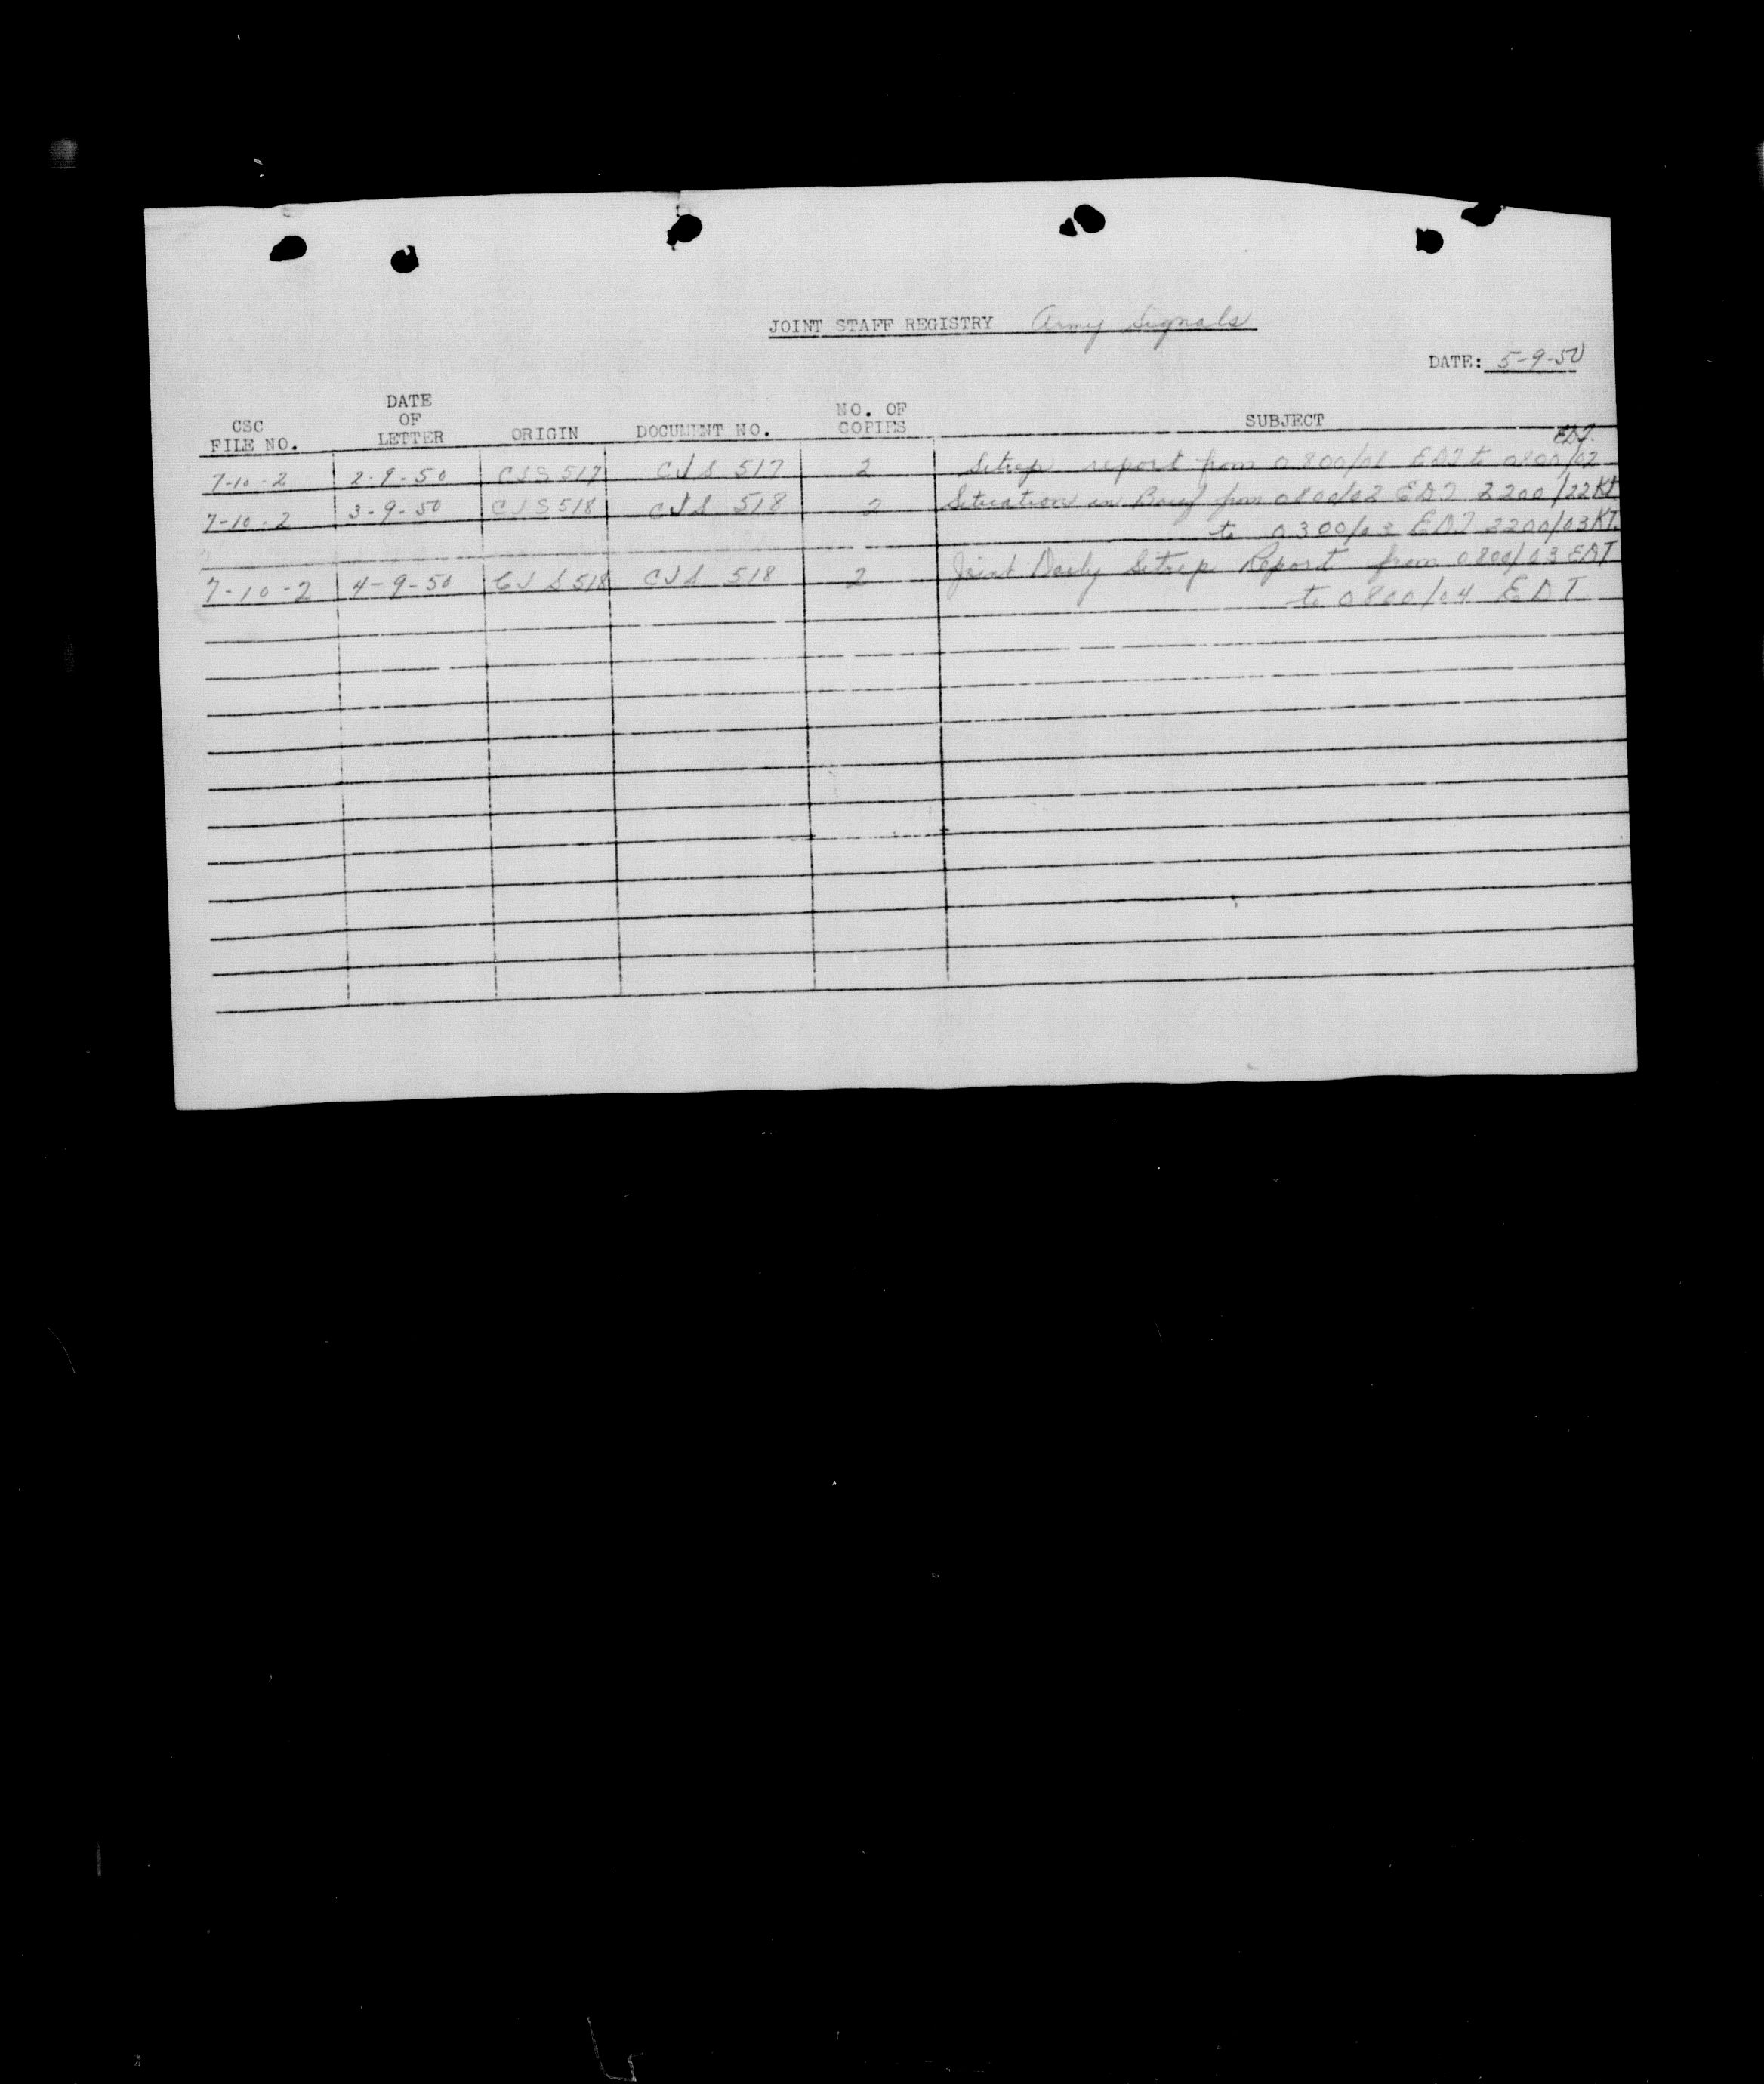 JOINT STAFF REGISTRY Army Signals
DATE: 5-9-50
CSC FILE NO. DATE OF LETTER ORIGIN DOCUMENT NO. NO. OF COPIES SUBJECT
EDT.
7-10-2 2-9-50 CJS 517 CJS 517 2 Sitrep report from 0800/01 EDT to 0800/02
7-10-2 3-9-50 CJS 518 CJS 518 2 Situation in Brief from 0800/02 EDT 2200/22 KT
to 0300/03 EDT 2200/03 KT.
7-10-2 4-9-50 CJS 518 CJS 518 2 Joint Daily Sitrep Report from 0800/03 EDT
to 0800/04 EDT